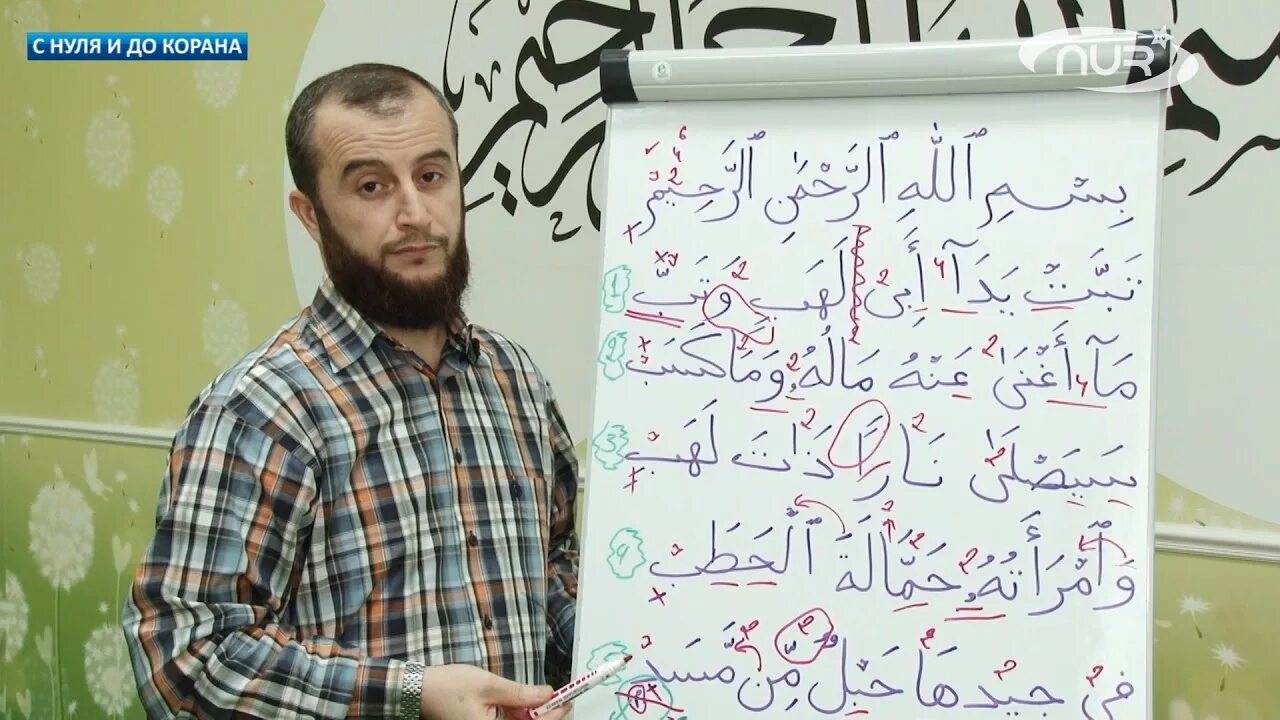 С НУЛЯ И ДО КОРАНА
NUR
بِسْمِ ٱللَّهِ ٱلرَّحْمَٰنِ ٱلرَّحِيمِ
تَبَّتْ يَدَآ أَبِى لَهَبٍ وَتَبَّ 1
مَآ أَغْنَىٰ عَنْهُ مَالُهُۥ وَمَا كَسَبَ 2
سَيَصْلَىٰ نَارًا ذَاتَ لَهَبٍ 3
وَٱمْرَأَتُهُۥ حَمَّالَةَ ٱلْحَطَبِ
فِى جِيدِهَا حَبْلٌ مِّن مَّسَدٍ